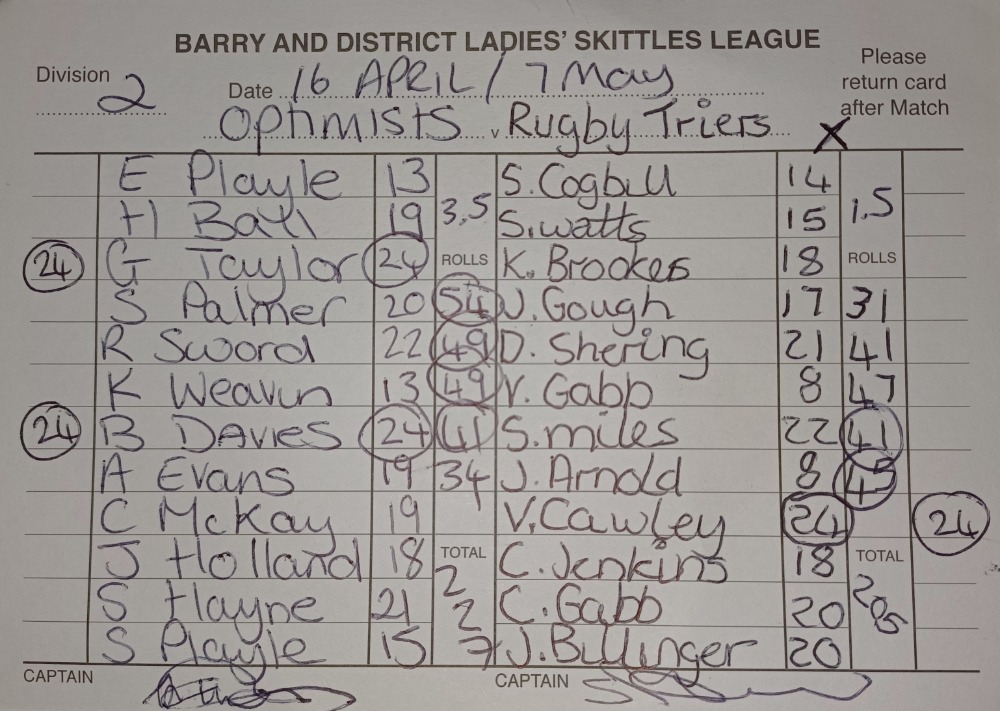 BARRY AND DISTRICT LADIES' SKITTLES LEAGUE
Division 2 Date 16 APRIL / 7 MAY
Please return card after Match
Optimists v Rugby Triers X
E Playle 13 3.5 S. Cogbill 14 1.5
H Ball 19 S. Watts 15
24 G Taylor 24 ROLLS K. Brookes 18 ROLLS
S Palmer 20 54 J. Gough 17 31
R Sword 22 49 D. Shering 21 41
K Weavin 13 49 V. Gabb 8 47
24 B DAVIES 24 41 S. miles 22 41
A Evans 19 34 J. Arnold 8 45
C McKay 19 V. Cawley 24 24
J Holland 18 TOTAL C. Jenkins 18 TOTAL
S Hayne 21 227 C. Gabb 20 205
S Playle 15 J. Billinger 20
CAPTAIN CAPTAIN